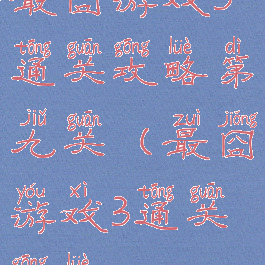 最囧游戏3
tōng guān gōng lüè dì
通关攻略第
jiǔ guān zuì jiǒng
九关（最囧
yóu xì tōng guān
游戏3通关
gōng lüè